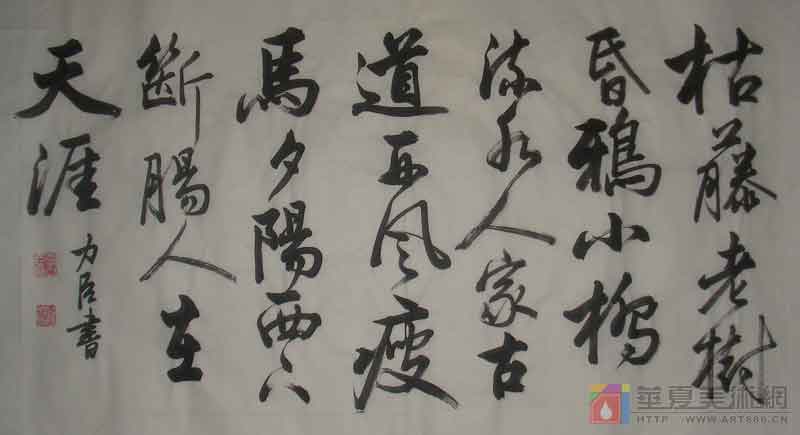 枯藤老樹
昏鴉小橋
流水人家古
道西風瘦
馬夕陽西下
斷腸人在
天涯
力臣書
華夏美術網
HTTP://WWW.ART86.CN